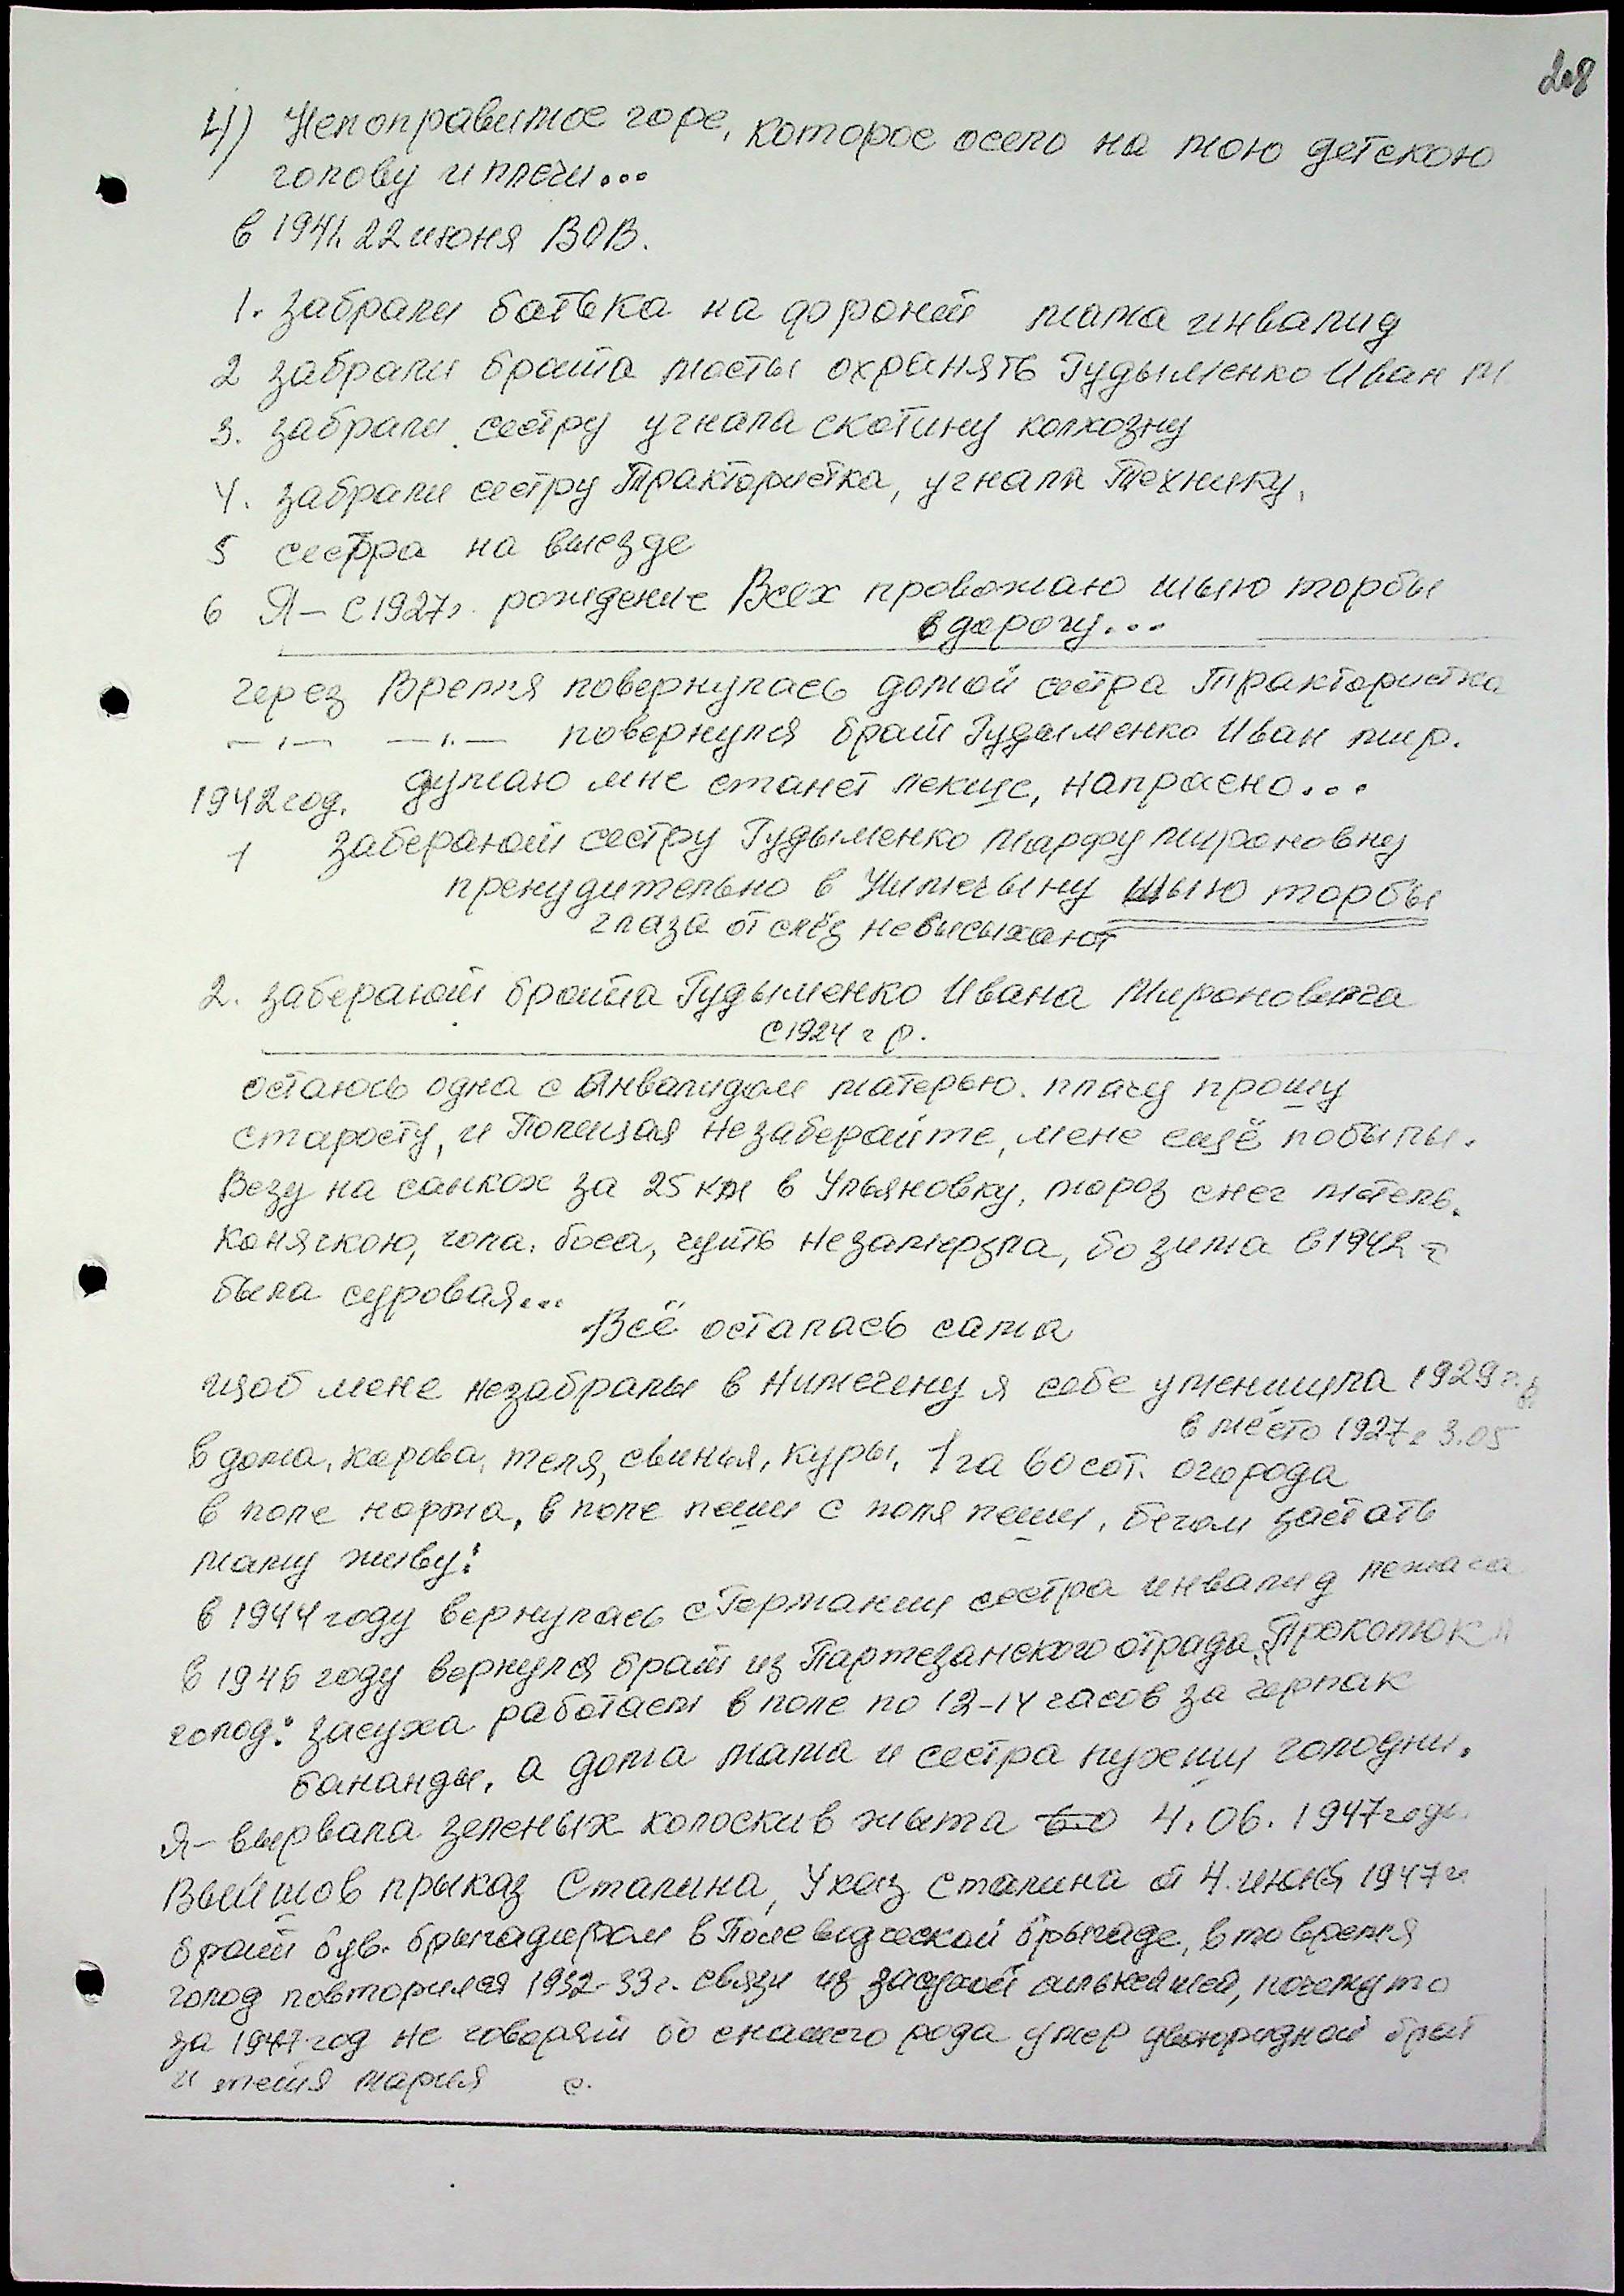 208
4) Непоправимое горе, которое осело на мою детскою
голову и плечи...
в 1941. 22 июня ВОВ.
1. забрали батька на фронт мама инвалид
2 забрали брата мосты охранять Гудыменко Иван М
3. забрали сестру угнала скотину колхозну
4. забрали сестру Трактористка, угнала Технику,
5 сестра на выезде
6 Я – с 1927г. рождение Всех провожаю шыю торбы
в дорогу...
через Время повернулась домой сестра Трактористка
— ı — — ı. — повернулся брат Гудыменко Иван мир.
1942 год. думаю мне станет лекще, напрасно...
1 заберают сестру Гудыменко Марфу Мироновну
пренудительно в Нимечыну шыю торбы
глаза от слёз невысыхают
2. заберают брата Гудыменко Ивана Мироновича
с 1924 г р.
остаюсь одна с Инвалидом матерью. плачу прошу
старосту, и Полицая незаберайте, мене ещё побылы.
Везу на санках за 25 км в Ульяновку, мороз снег метель.
Конячкою, гола, боса, чуть незамерзла, бо зима в 1942 г
была суровая...
Всё осталась сама
щоб мене незабралы в Нимечену я себе уменшила 1929 г.р.
в место 1927 г 3.05
в дома, карова, теля, свинья, куры, 1 га 60 сот. огорода
в поле норма, в поле пеши с поля пеши, бегом застать
маму живу!
в 1944 году вернулась с Германии сестра инвалид
в 1946 году вернулся брат из Партезанского отряда,
голод: засуха работаем в поле по 12–14 часов за черпак
баланды, а дома мама и сестра пухлии голодни.
Я – вырвала зеленых колоскив жыта 4.06.1947 года
Выйшов прыказ Сталина, Указ Сталина от 4. июня 1947 г
брат був. брыгадиром в Полевидческой брыгаде, в то время
голод повторился 1932-33 г. связи из засухой сильнейшей, почемуто
за 1947 год не говорят бо снашего рода умер двоюродной брат
и тётя Мария с.